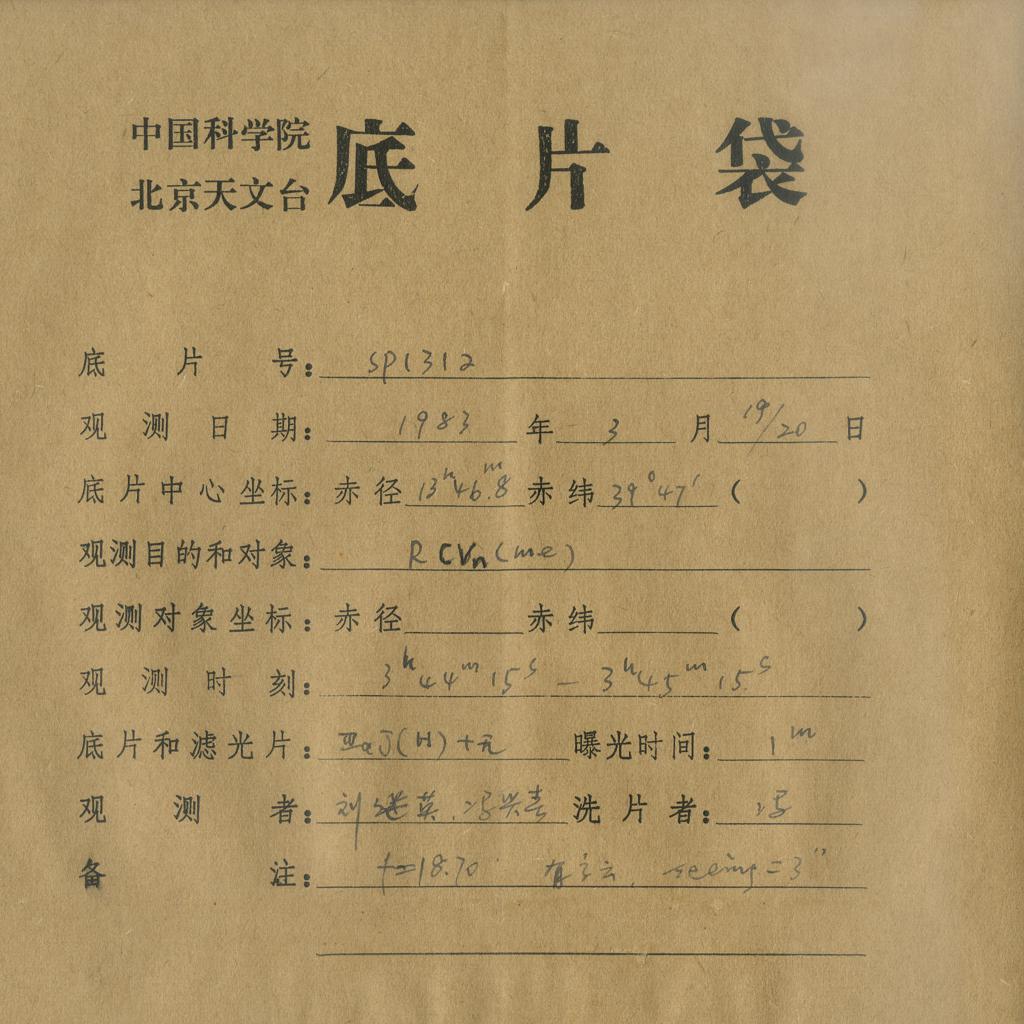 中国科学院
北京天文台
底片袋
底片号：SP1312
观测日期：1983年3月19/20日
底片中心坐标：赤径13h46m.8赤纬39°47′（　　）
观测目的和对象：R CVn(me)
观测对象坐标：赤径　　赤纬　　（　　）
观测时刻：3h44m15s — 3h45m15s
底片和滤光片：ⅢaJ(H)+无 曝光时间：1m
观测者：刘继英.冯兴春 洗片者：冯
备注：f=18.70 有 云. seeing=3″